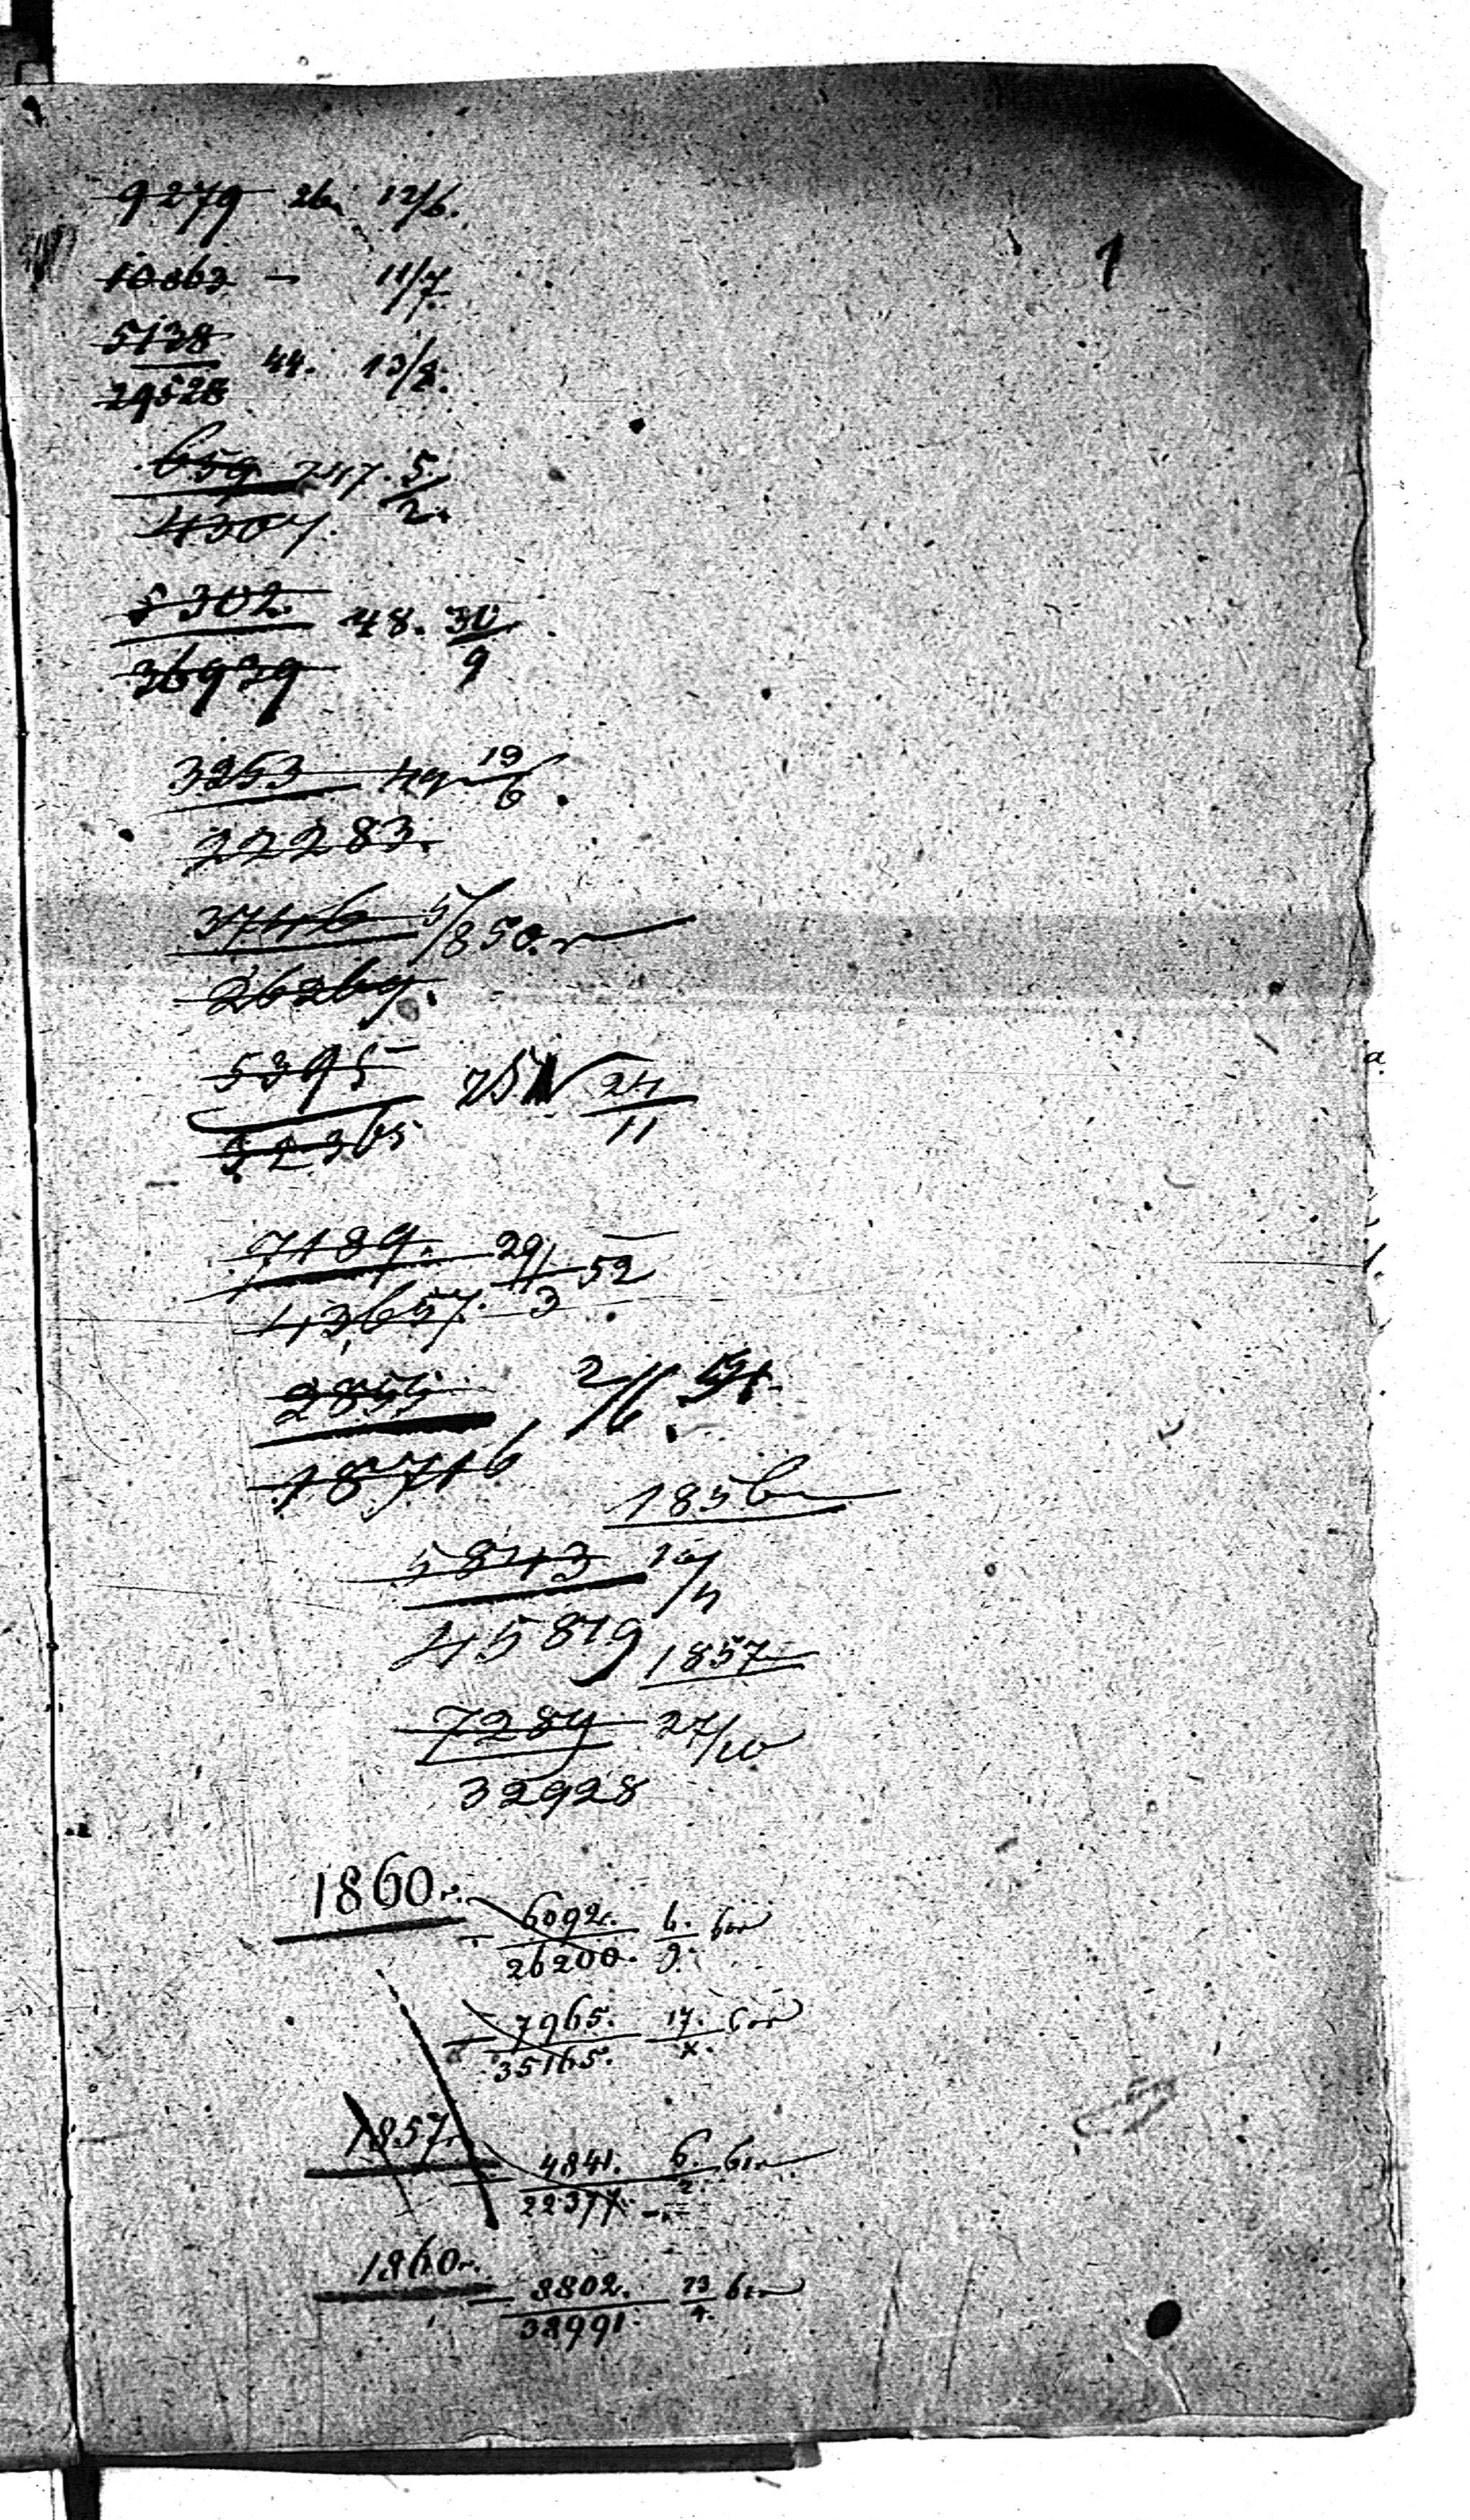 9279 26. 12/6.
1
10363 — 11/7.
5138
44. 13/2.
29528
659 247. 5/2.
4307.
5302. 48. 30/9
36939
3253 49 19/6.
22283.
3746 5/8 50. г
26269.
5395 24/11
32365
7189. 29/3 52
43657.
2855 2/6 54.
18716
1856
5843
45819
1857
7284 27/10
32928
1860 г.
6092. 6./9. бол
26200.
7965. 17./x. бол
35165.
1857
4841. 6./2. бол
22377.
1860 г.
8802. 23/4. бол
38991.